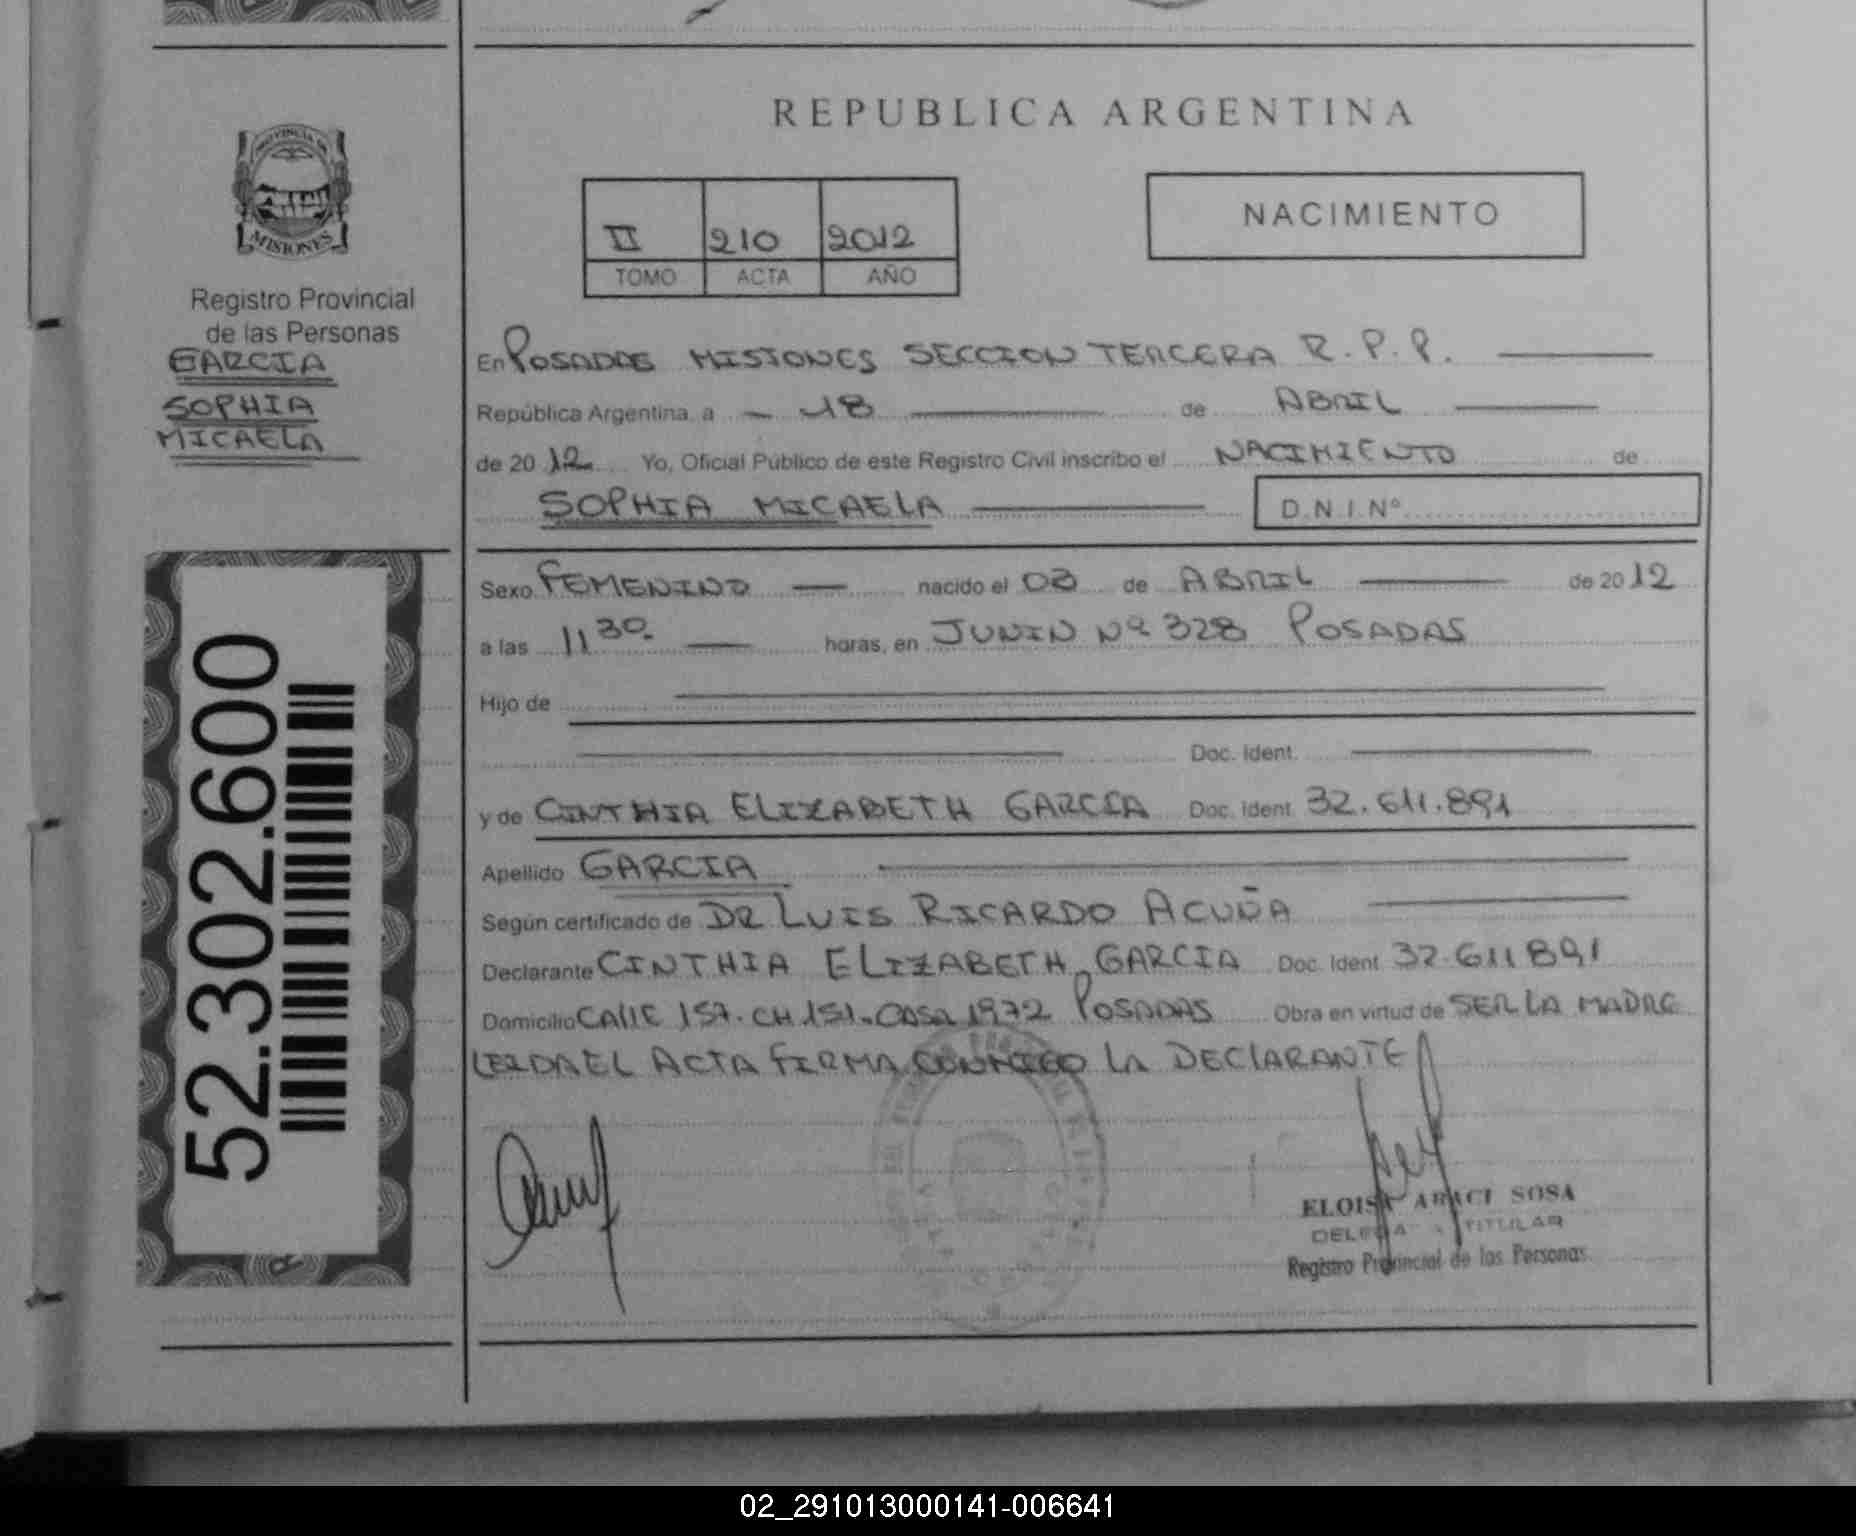 PROVINCIA DE
MISIONES
Registro Provincial
de las Personas
GARCIA
SOPHIA
MICAELA
52.302.600
REPUBLICA ARGENTINA
NACIMIENTO
II 210 2012
TOMO ACTA AÑO
En POSADAS MISIONES SECCION TERCERA R.P.P.
República Argentina, a 18 de ABRIL
de 2012 Yo, Oficial Público de este Registro Civil inscribo el NACIMIENTO de
SOPHIA MICAELA D.N.I.Nº
Sexo FEMENINO nacido el 03 de ABRIL de 2012
a las 11 30 horas, en JUNIN Nº 328 POSADAS
Hijo de
Doc. Ident.
y de CINTHIA ELIZABETH GARCÍA Doc. Ident. 32.611.891
Apellido GARCIA
Según certificado de DR LUIS RICARDO ACUÑA
Declarante CINTHIA ELIZABETH GARCIA Doc. Ident 32.611891
Domicilio CALLE 157. CH.151. CASA 1972 POSADAS Obra en virtud de SER LA MADRE
LEIDA EL ACTA FIRMA CONMIGO LA DECLARANTE
ELOISA ARACI SOSA
DELEGADA TITULAR
Registro Provincial de las Personas
02_291013000141-006641